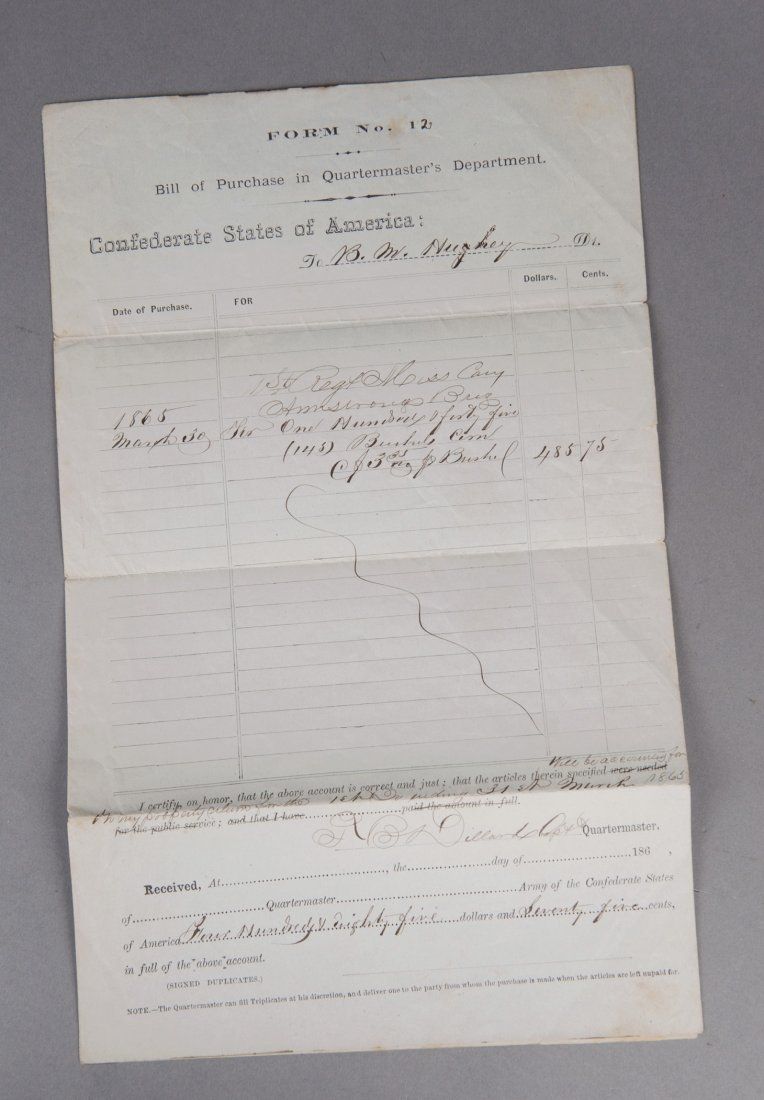 FORM No. 12
Bill of Purchase in Quartermaster's Department.
Confederate States of America:
To B. M. Hughey Dr.
Date of Purchase. FOR Dollars. Cents.
1st Regt Miss Cavy
1865 Armstrong Brig
March 30 For One Hundred & forty five
(145) Bushels corn
@ $3 35/100 p Bushel 485 75
will be accounted for
I certify, on honor, that the above account is correct and just; that the articles therein specified were needed
on my property return for the ending 31st March 1865
for the public service; and that I have paid the account in full.
R B Dillard Capt & Quartermaster.
Received, At , the day of 186 ,
of Quartermaster Army of the Confederate States
of America Four Hundred & eighty five dollars and Seventy five cents,
in full of the above account.
(SIGNED DUPLICATES.)
NOTE.—The Quartermaster can fill Triplicates at his discretion, and deliver one to the party from whom the purchase is made when the articles are left unpaid for.